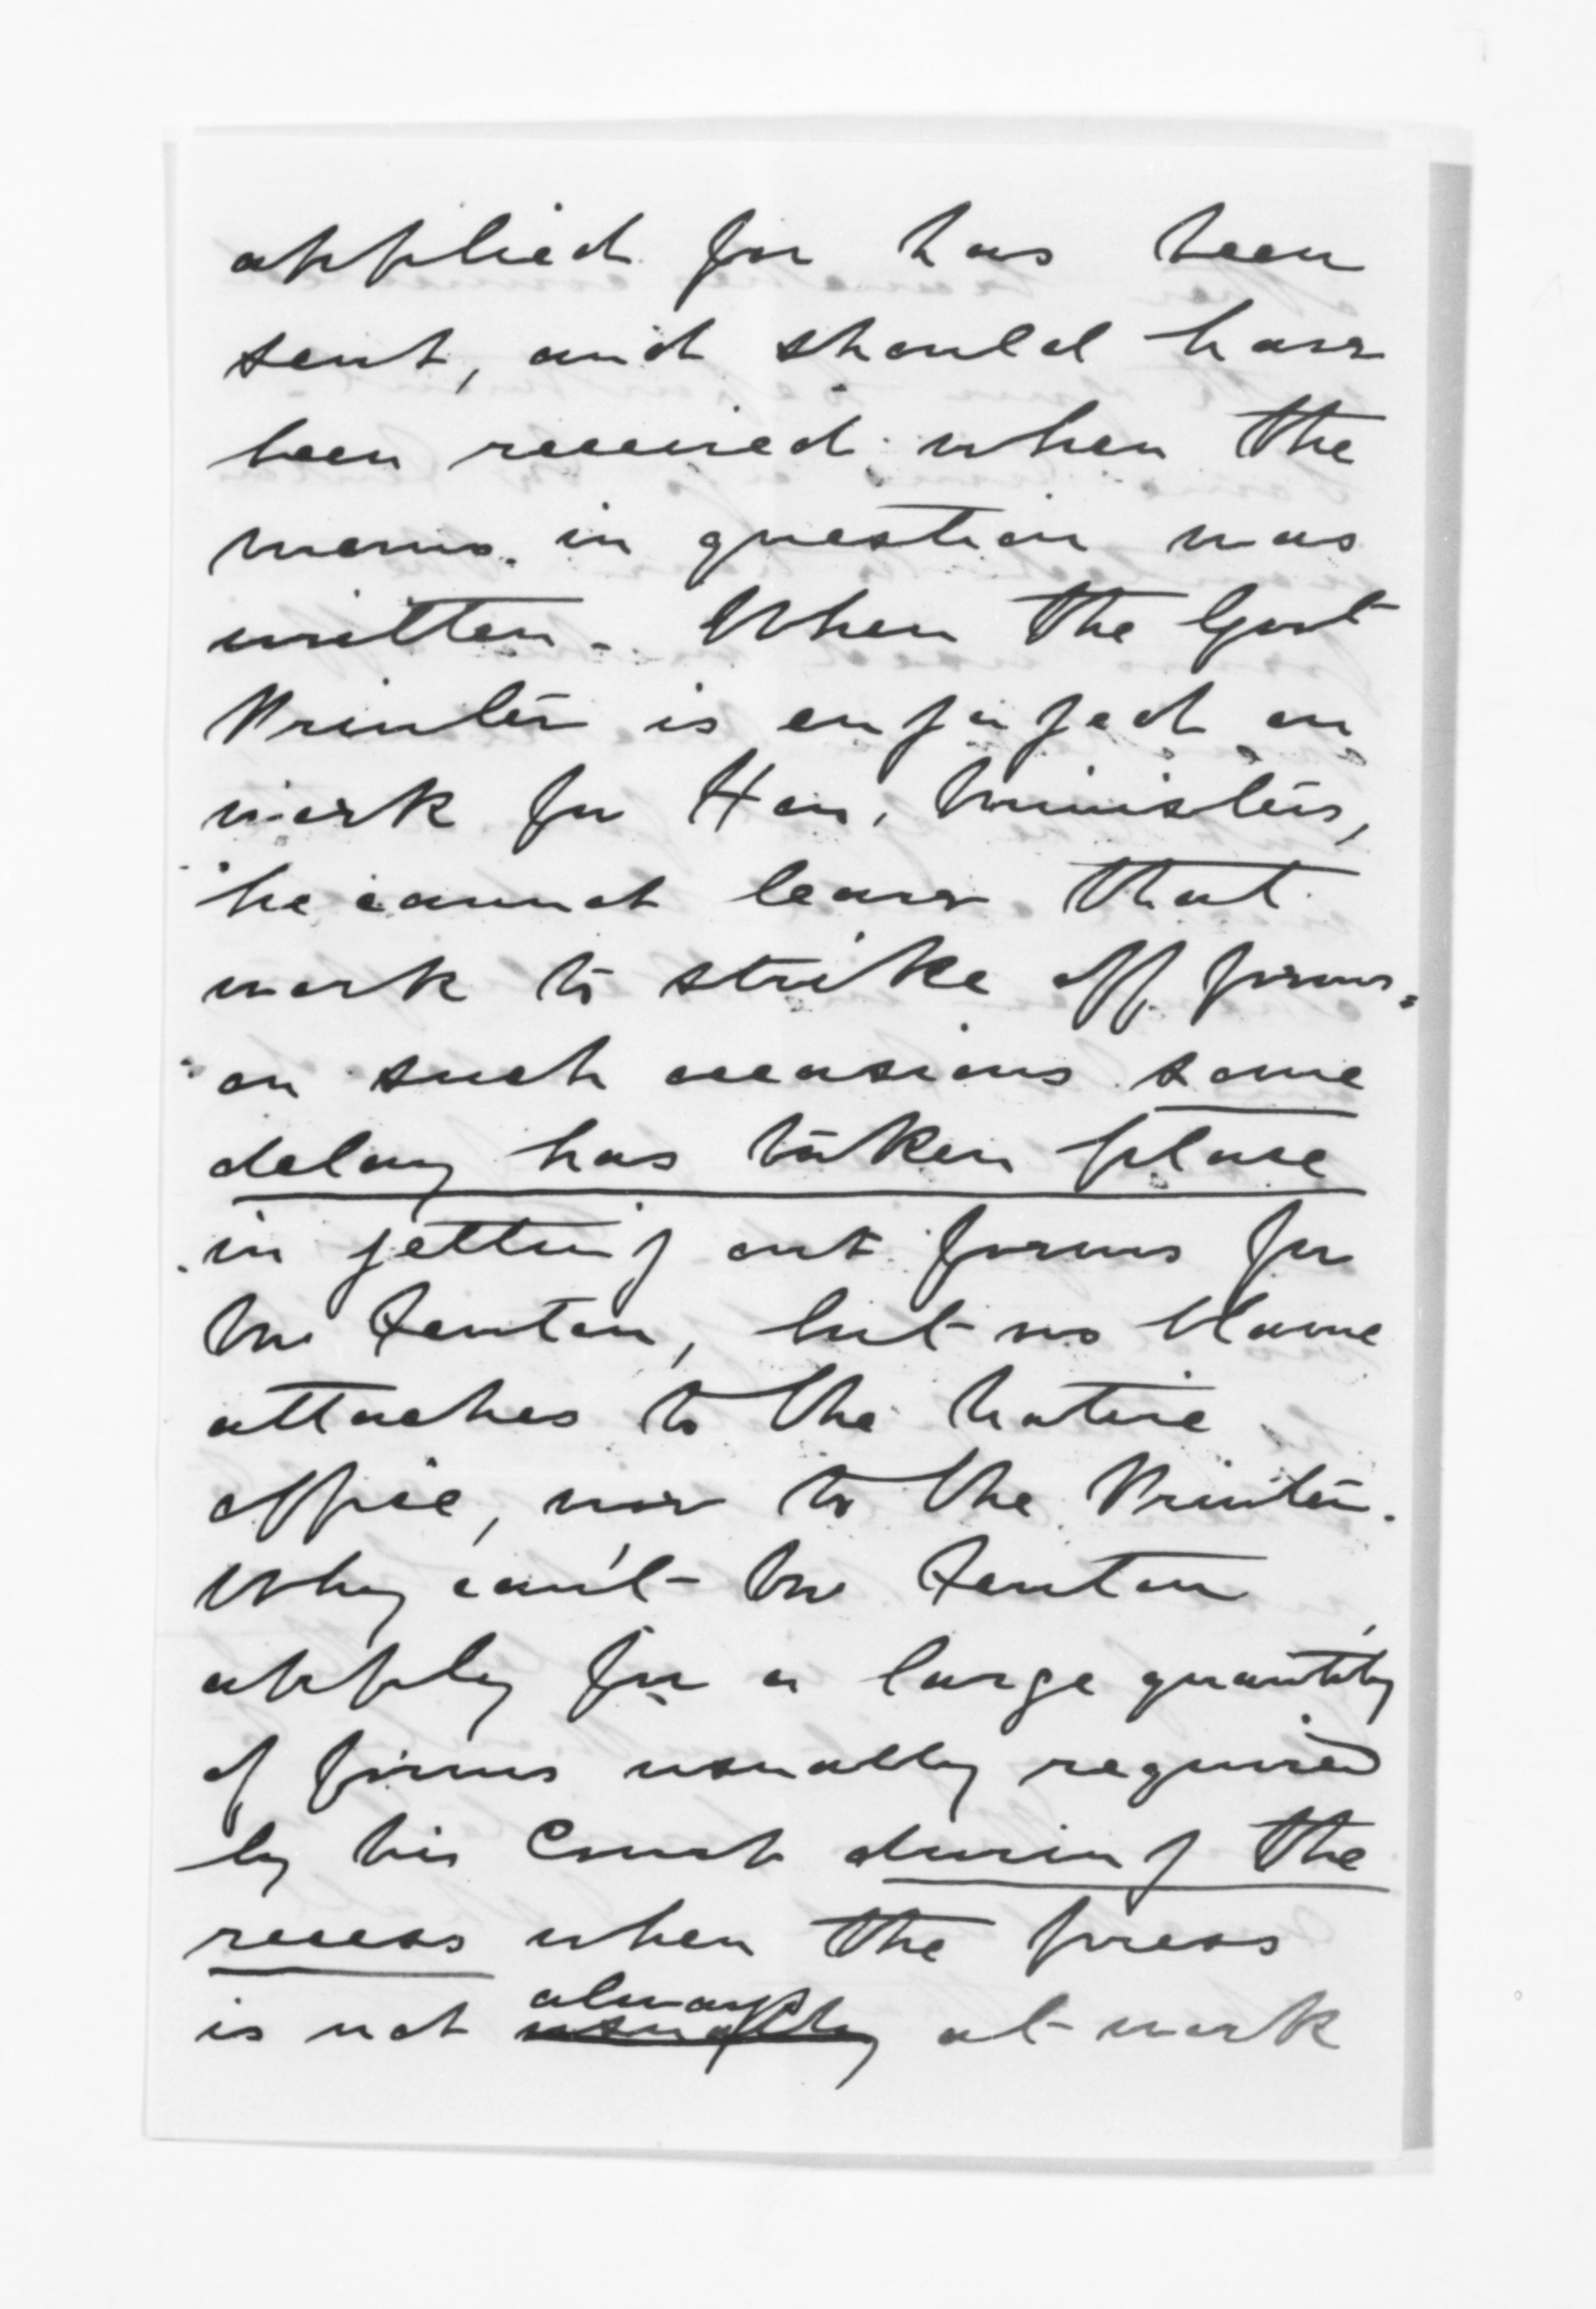 applied for has been
sent, and should have
been received when the
memo. in question was
written. When the Govt
Printer is engaged on
work for Hon. Ministers,
he cannot leave that
work to strike off forms.
on such occasions some
delay has taken place
in getting out forms for
Mr Fenton, but no blame
attaches to the Native
office, nor to the Printer.
Why can't Mr Fenton
apply for a large quantity
of forms usually required
by his Court during the
recess when the press
always
is not usually at work